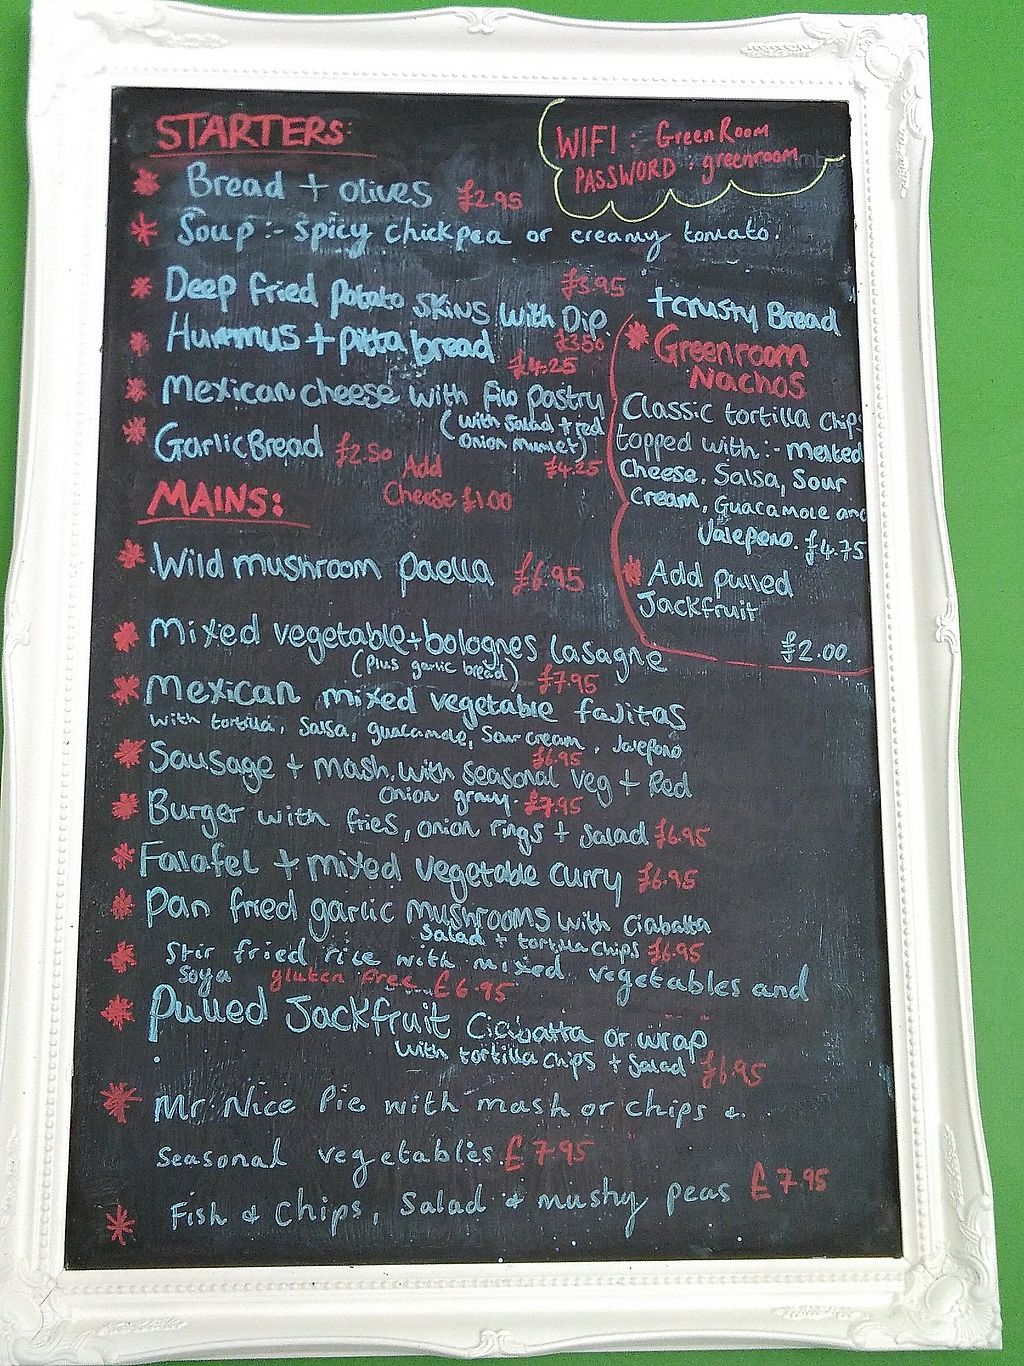 STARTERS:
WIFI :- GreenRoom
PASSWORD : greenroom
* Bread + olives £2.95
* Soup :- spicy chickpea or creamy tomato.
£3.95
+ crusty Bread
* Deep fried potato skins with Dip.
£3.50
* Hummus + pitta bread
£4.25
* Mexican cheese with filo pastry
(with salad + red
£4.25
* Garlic Bread £2.50 Add
Cheese £1.00
* Greenroom
Nachos
Classic tortilla chips
topped with :- melted
Cheese, Salsa, Sour
Cream, Guacamole and
Jalepeno. £4.75
* Add pulled
Jackfruit
£2.00.
MAINS:
* Wild mushroom paella £6.95
* Mixed vegetable + bolognes lasagne
(plus garlic bread) £7.95
* Mexican mixed vegetable fajitas
with tortilla, salsa, guacamole, sour cream, Jalepeno
£6.95
* Sausage + mash with seasonal veg + Red
onion gravy. £7.95
* Burger with fries, onion rings + salad £6.95
* Falafel + mixed vegetable curry £6.95
* Pan fried garlic mushrooms with Ciabatta
Salad + tortilla chips £6.95
* Stir fried rice with mixed vegetables and
soya gluten free £6.95
* Pulled Jackfruit Ciabatta or wrap
with tortilla chips + salad £6.95
* Mr Nice Pie with mash or chips &
seasonal vegetables. £7.95
* Fish & Chips, Salad & mushy peas £7.95